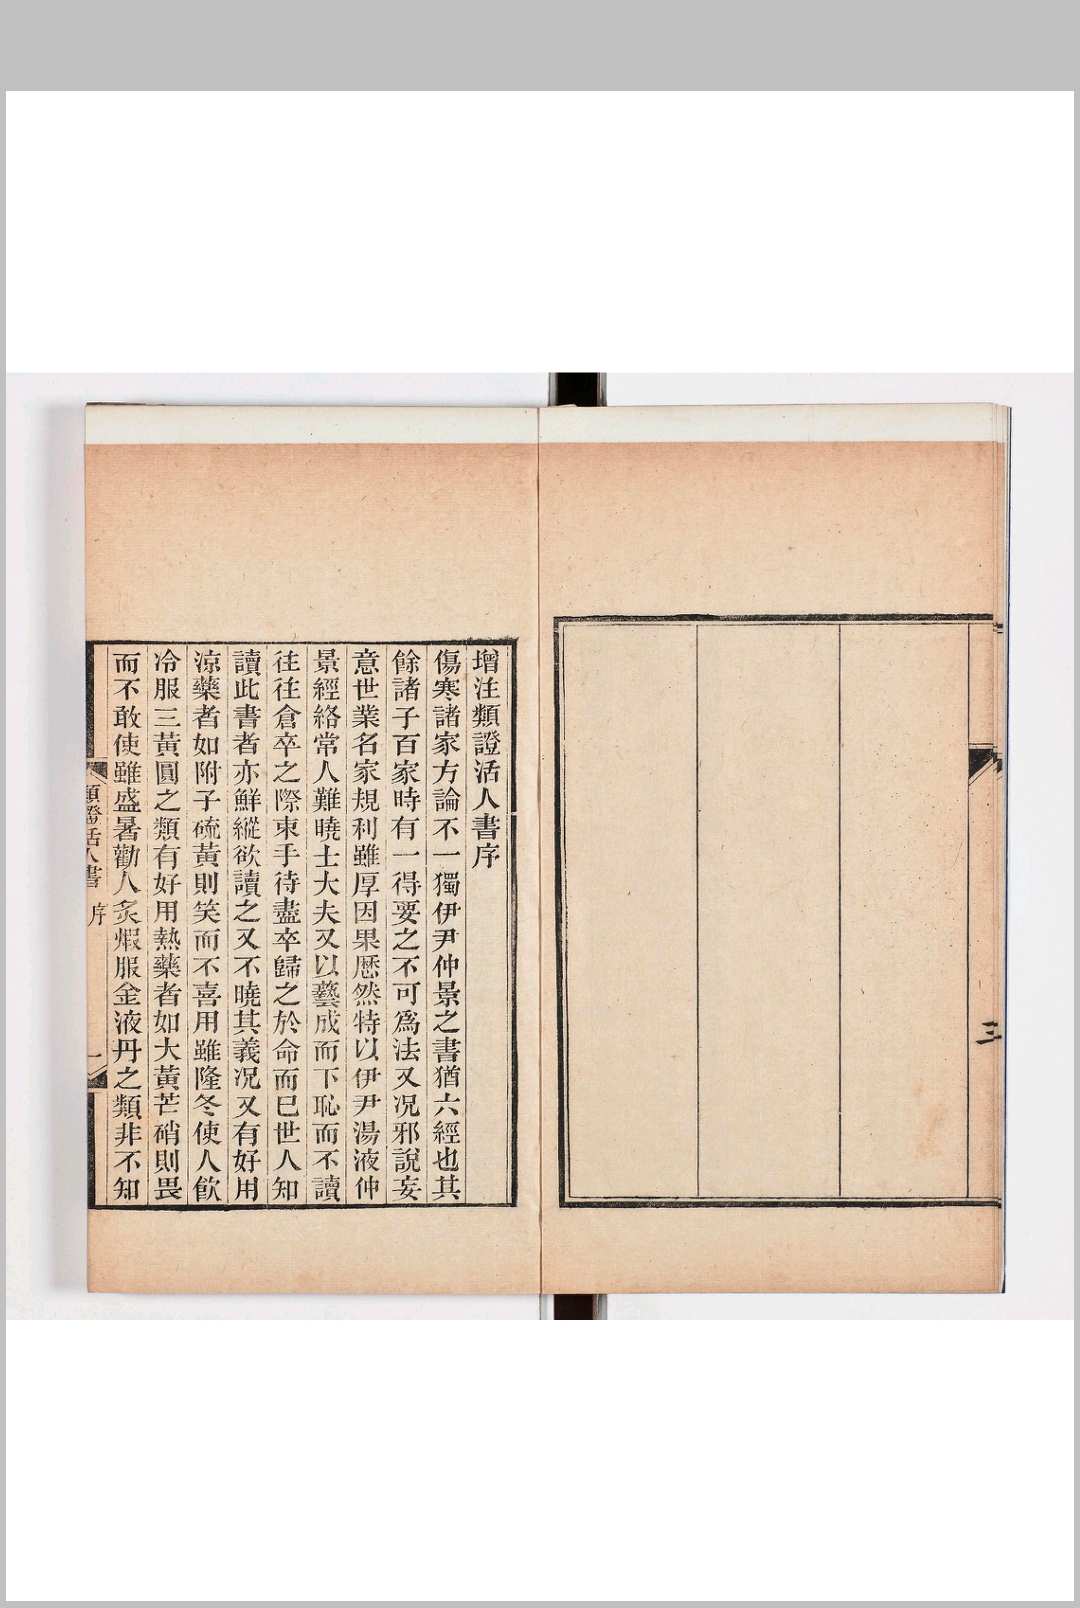 三
增注類證活人書序
傷寒諸家方論不一獨伊尹仲景之書猶六經也其
餘諸子百家時有一得要之不可爲法又況邪說妄
意世業名家規利雖厚因果歷然特以伊尹湯液仲
景經絡常人難曉士大夫又以藝成而下恥而不讀
往往倉卒之際束手待盡卒歸之於命而已世人知
讀此書者亦鮮縱欲讀之又不曉其義况又有好用
涼藥者如附子硫黃則笑而不喜用雖隆冬使人飮
冷服三黃圓之類有好用熱藥者如大黃芒硝則畏
而不敢使雖盛暑勸人炙煆服金液丹之類非不知
類證活人書 序 一